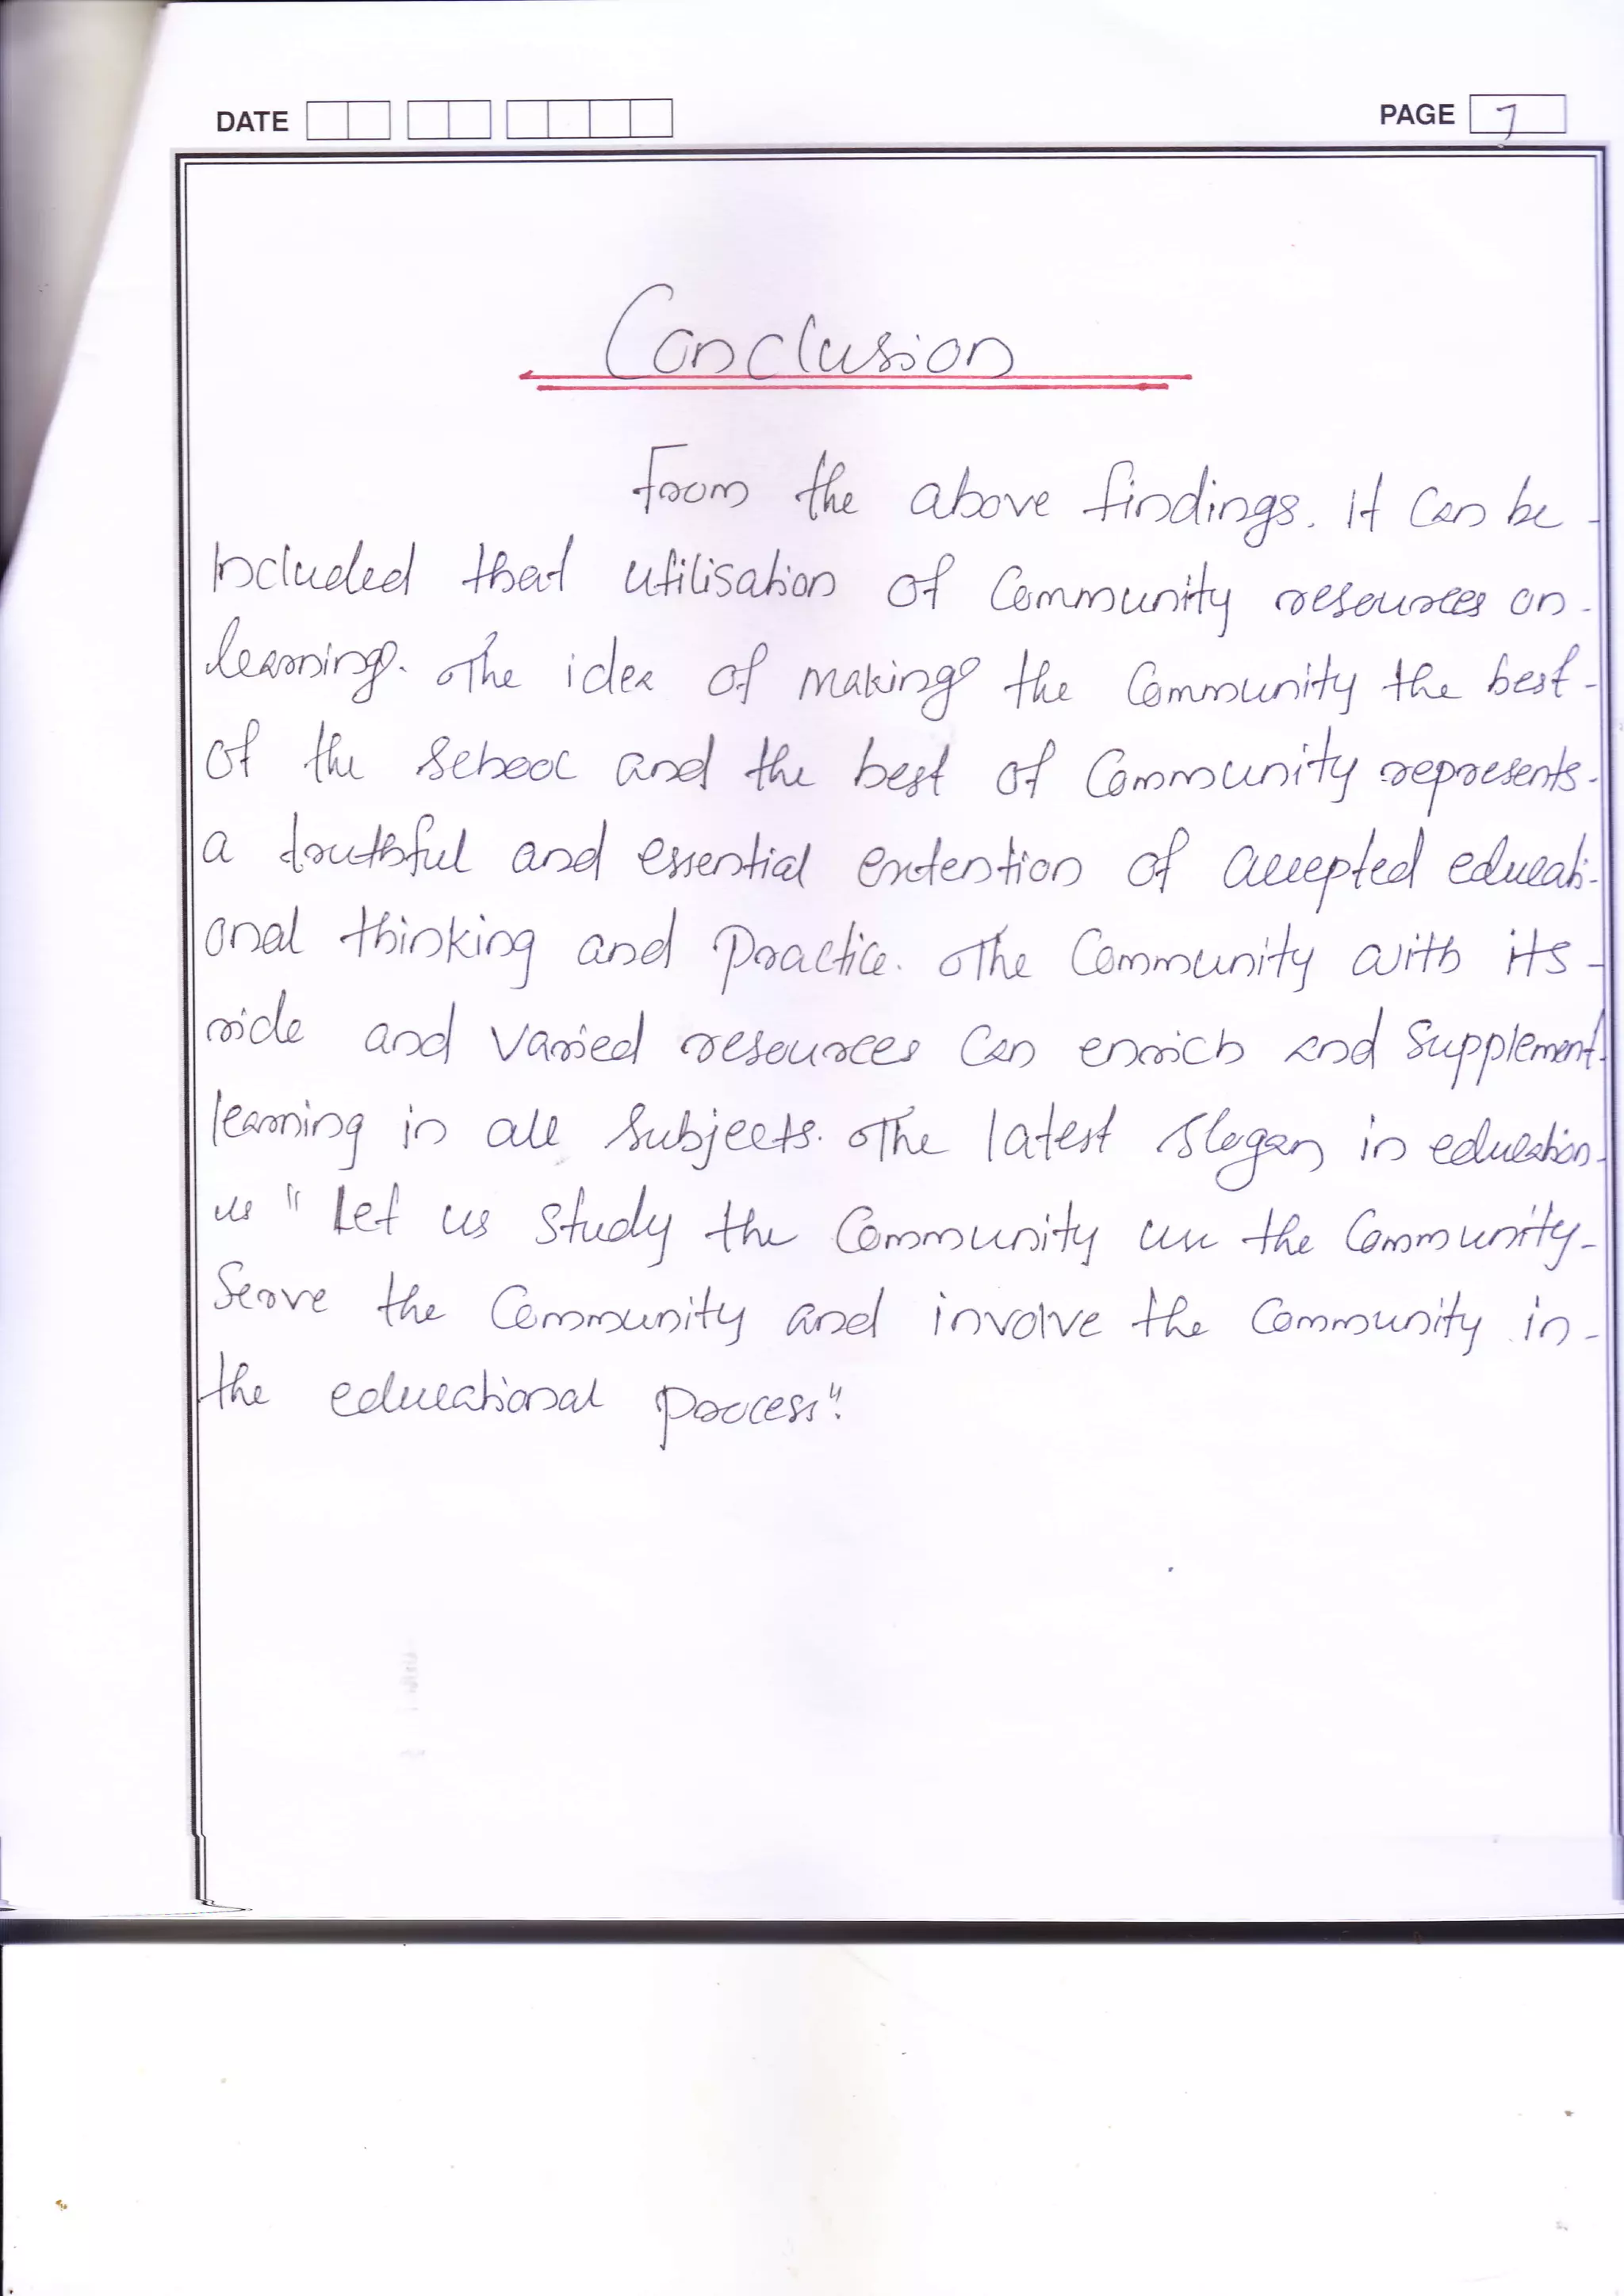 DATE
PAGE 7
Conclusion
From the above findings. It can be
Included that utilisation of Community resources on
learning. The idea of making the Community the best
of the school and the best of Community represents
a truthful and essential extention of accepted educati-
onal thinking and Practice. The Community with its
ride and varied resources can enrich and supplement
learning in all subjects. The latest slogan in education
is " Let us study the Community use the Community
Serve the Community and involve the Community in
the educational process".